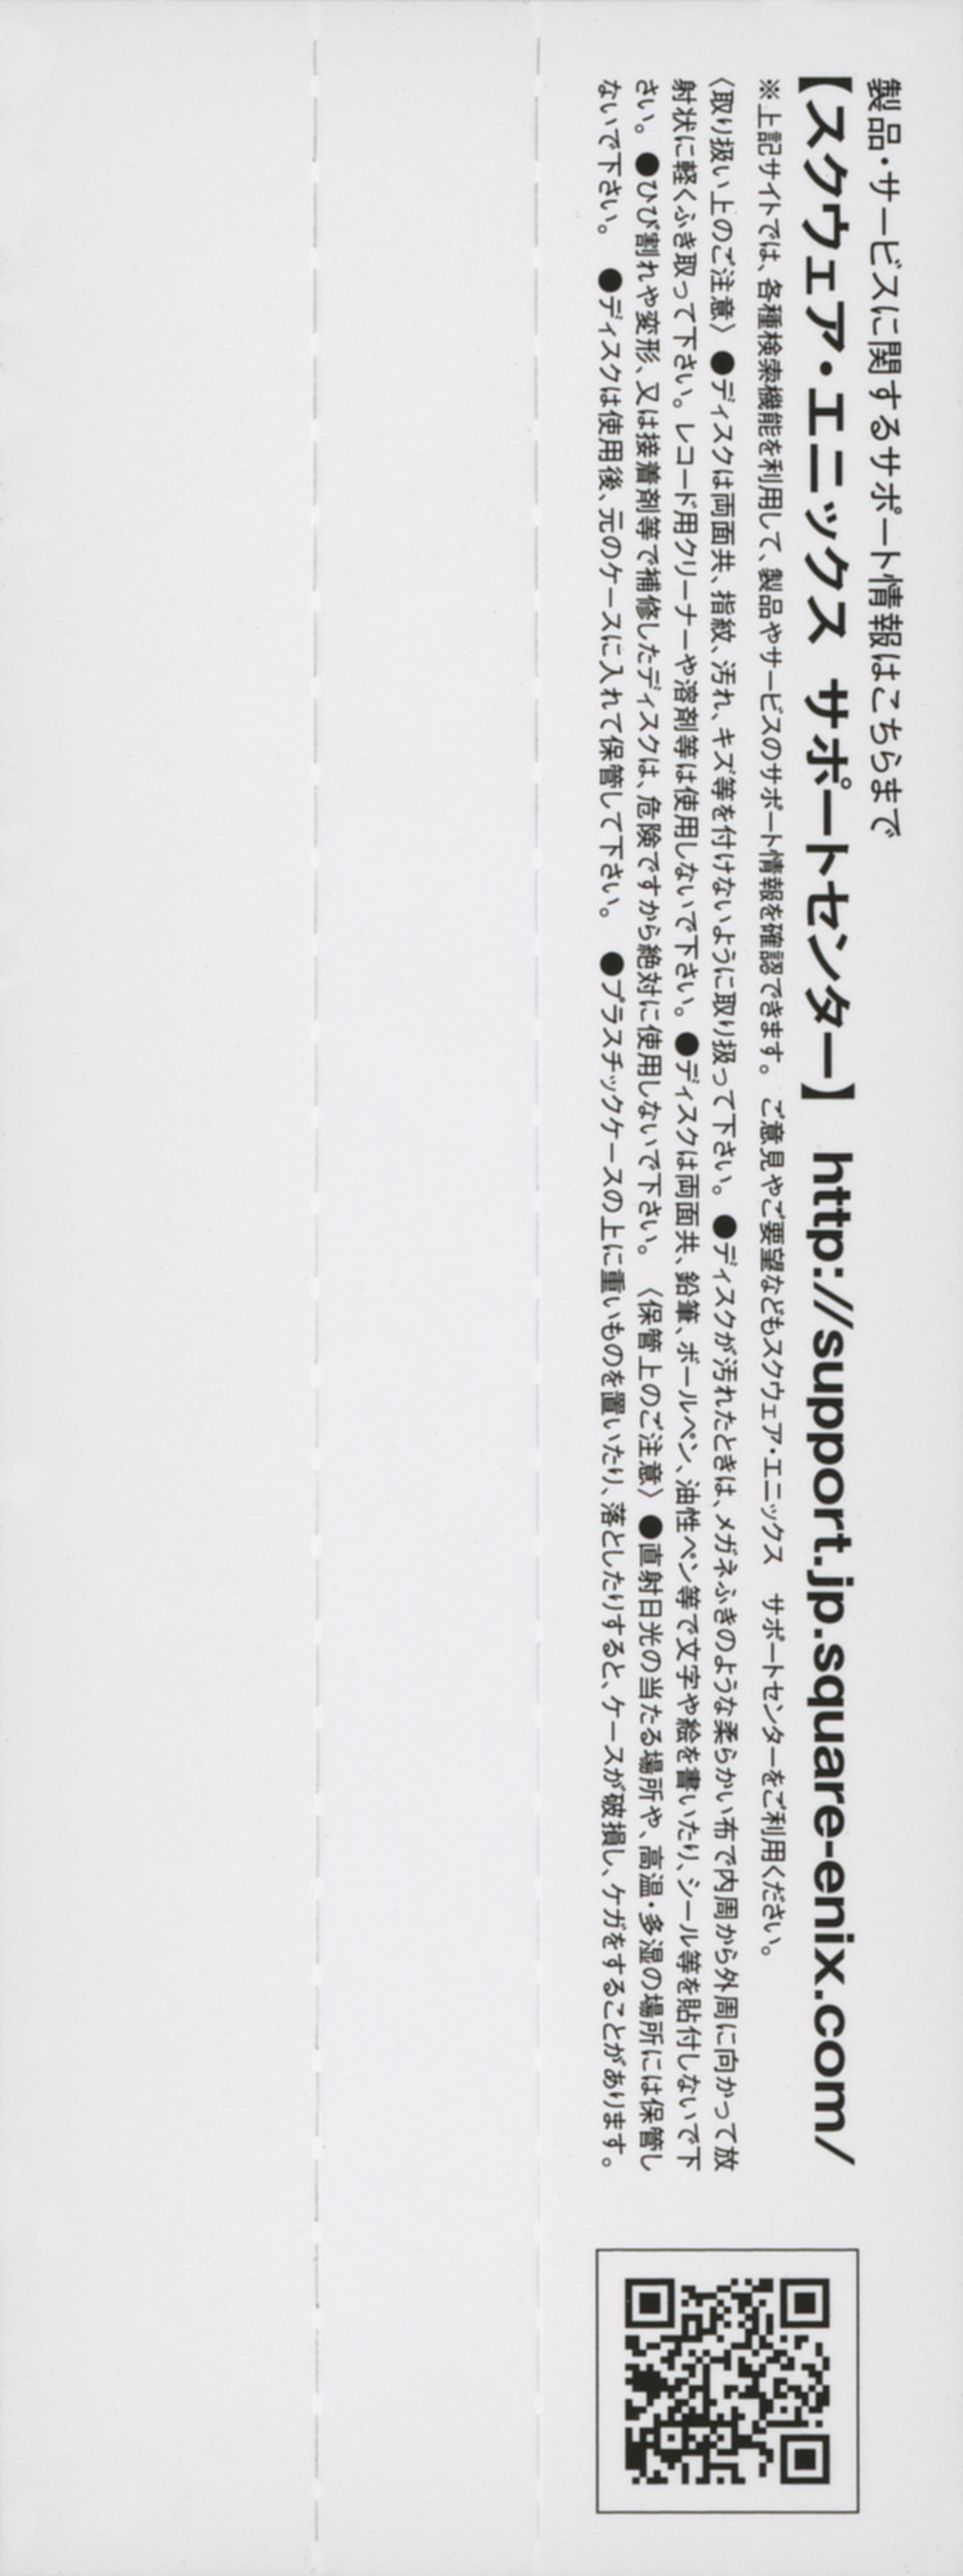 製品・サービスに関するサポート情報はこちらまで
【スクウェア・エニックス サポートセンター】 http://support.jp.square-enix.com/
※上記サイトでは、各種検索機能を利用して、製品やサービスのサポート情報を確認できます。 ご意見やご要望などもスクウェア・エニックス サポートセンターをご利用ください。
〈取り扱い上のご注意〉 ●ディスクは両面共、指紋、汚れ、キズ等を付けないように取り扱って下さい。 ●ディスクが汚れたときは、メガネふきのような柔らかい布で内周から外周に向かって放
射状に軽くふき取って下さい。 レコード用クリーナーや溶剤等は使用しないで下さい。 ●ディスクは両面共、鉛筆、ボールペン、油性ペン等で文字や絵を書いたり、シール等を貼付しないで下
さい。 ●ひび割れや変形、又は接着剤等で補修したディスクは、危険ですから絶対に使用しないで下さい。 〈保管上のご注意〉 ●直射日光の当たる場所や、高温・多湿の場所には保管し
ないで下さい。 ●ディスクは使用後、元のケースに入れて保管して下さい。 ●プラスチックケースの上に重いものを置いたり、落としたりすると、ケースが破損し、ケガをすることがあります。